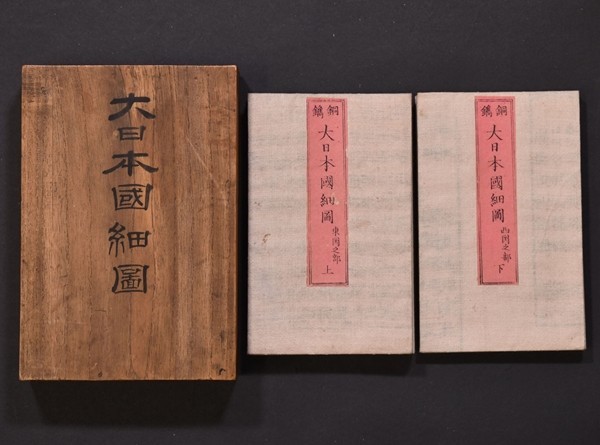 大日本國細圖
銅鐫
大日本國細圖
東國之部
上
銅鐫
大日本國細圖
西國之部
下